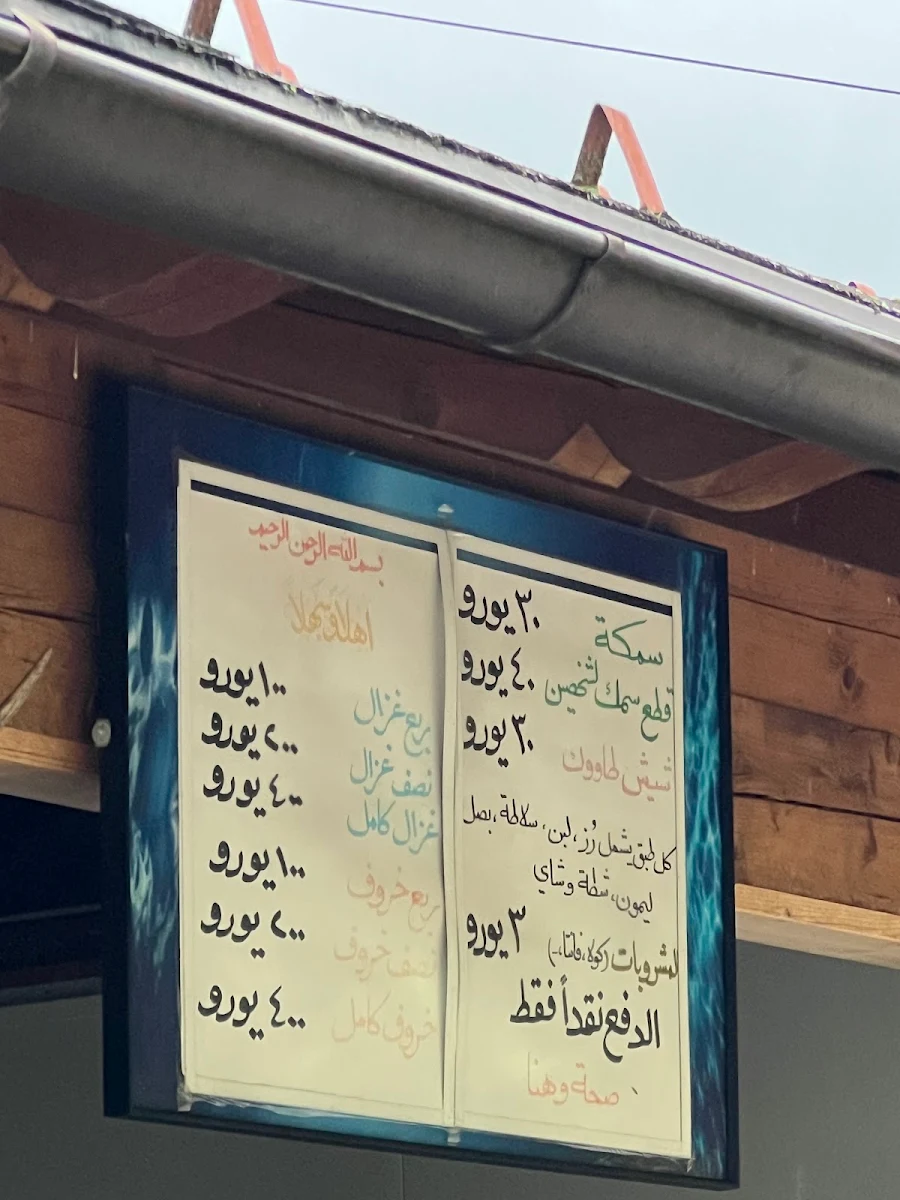 بسم الله الرحمن الرحيم
اهلا وسهلا
ربع غزال ١٠٠ يورو
نصف غزال ٢٠٠ يورو
غزال كامل ٤٠٠ يورو
ربع خروف ١٠٠ يورو
نصف خروف ٢٠٠ يورو
خروف كامل ٤٠٠ يورو
سمكة ٣٠ يورو
قطع سمك لشخصين ٤٠ يورو
شيش طاووك ٣٠ يورو
كل طبق يشمل رُز، لبن، سلاطة، بصل
ليمون، شطة وشاي
المشروبات (كولا، فانتا،..) ٣ يورو
الدفع نقداً فقط
صحة وهنا